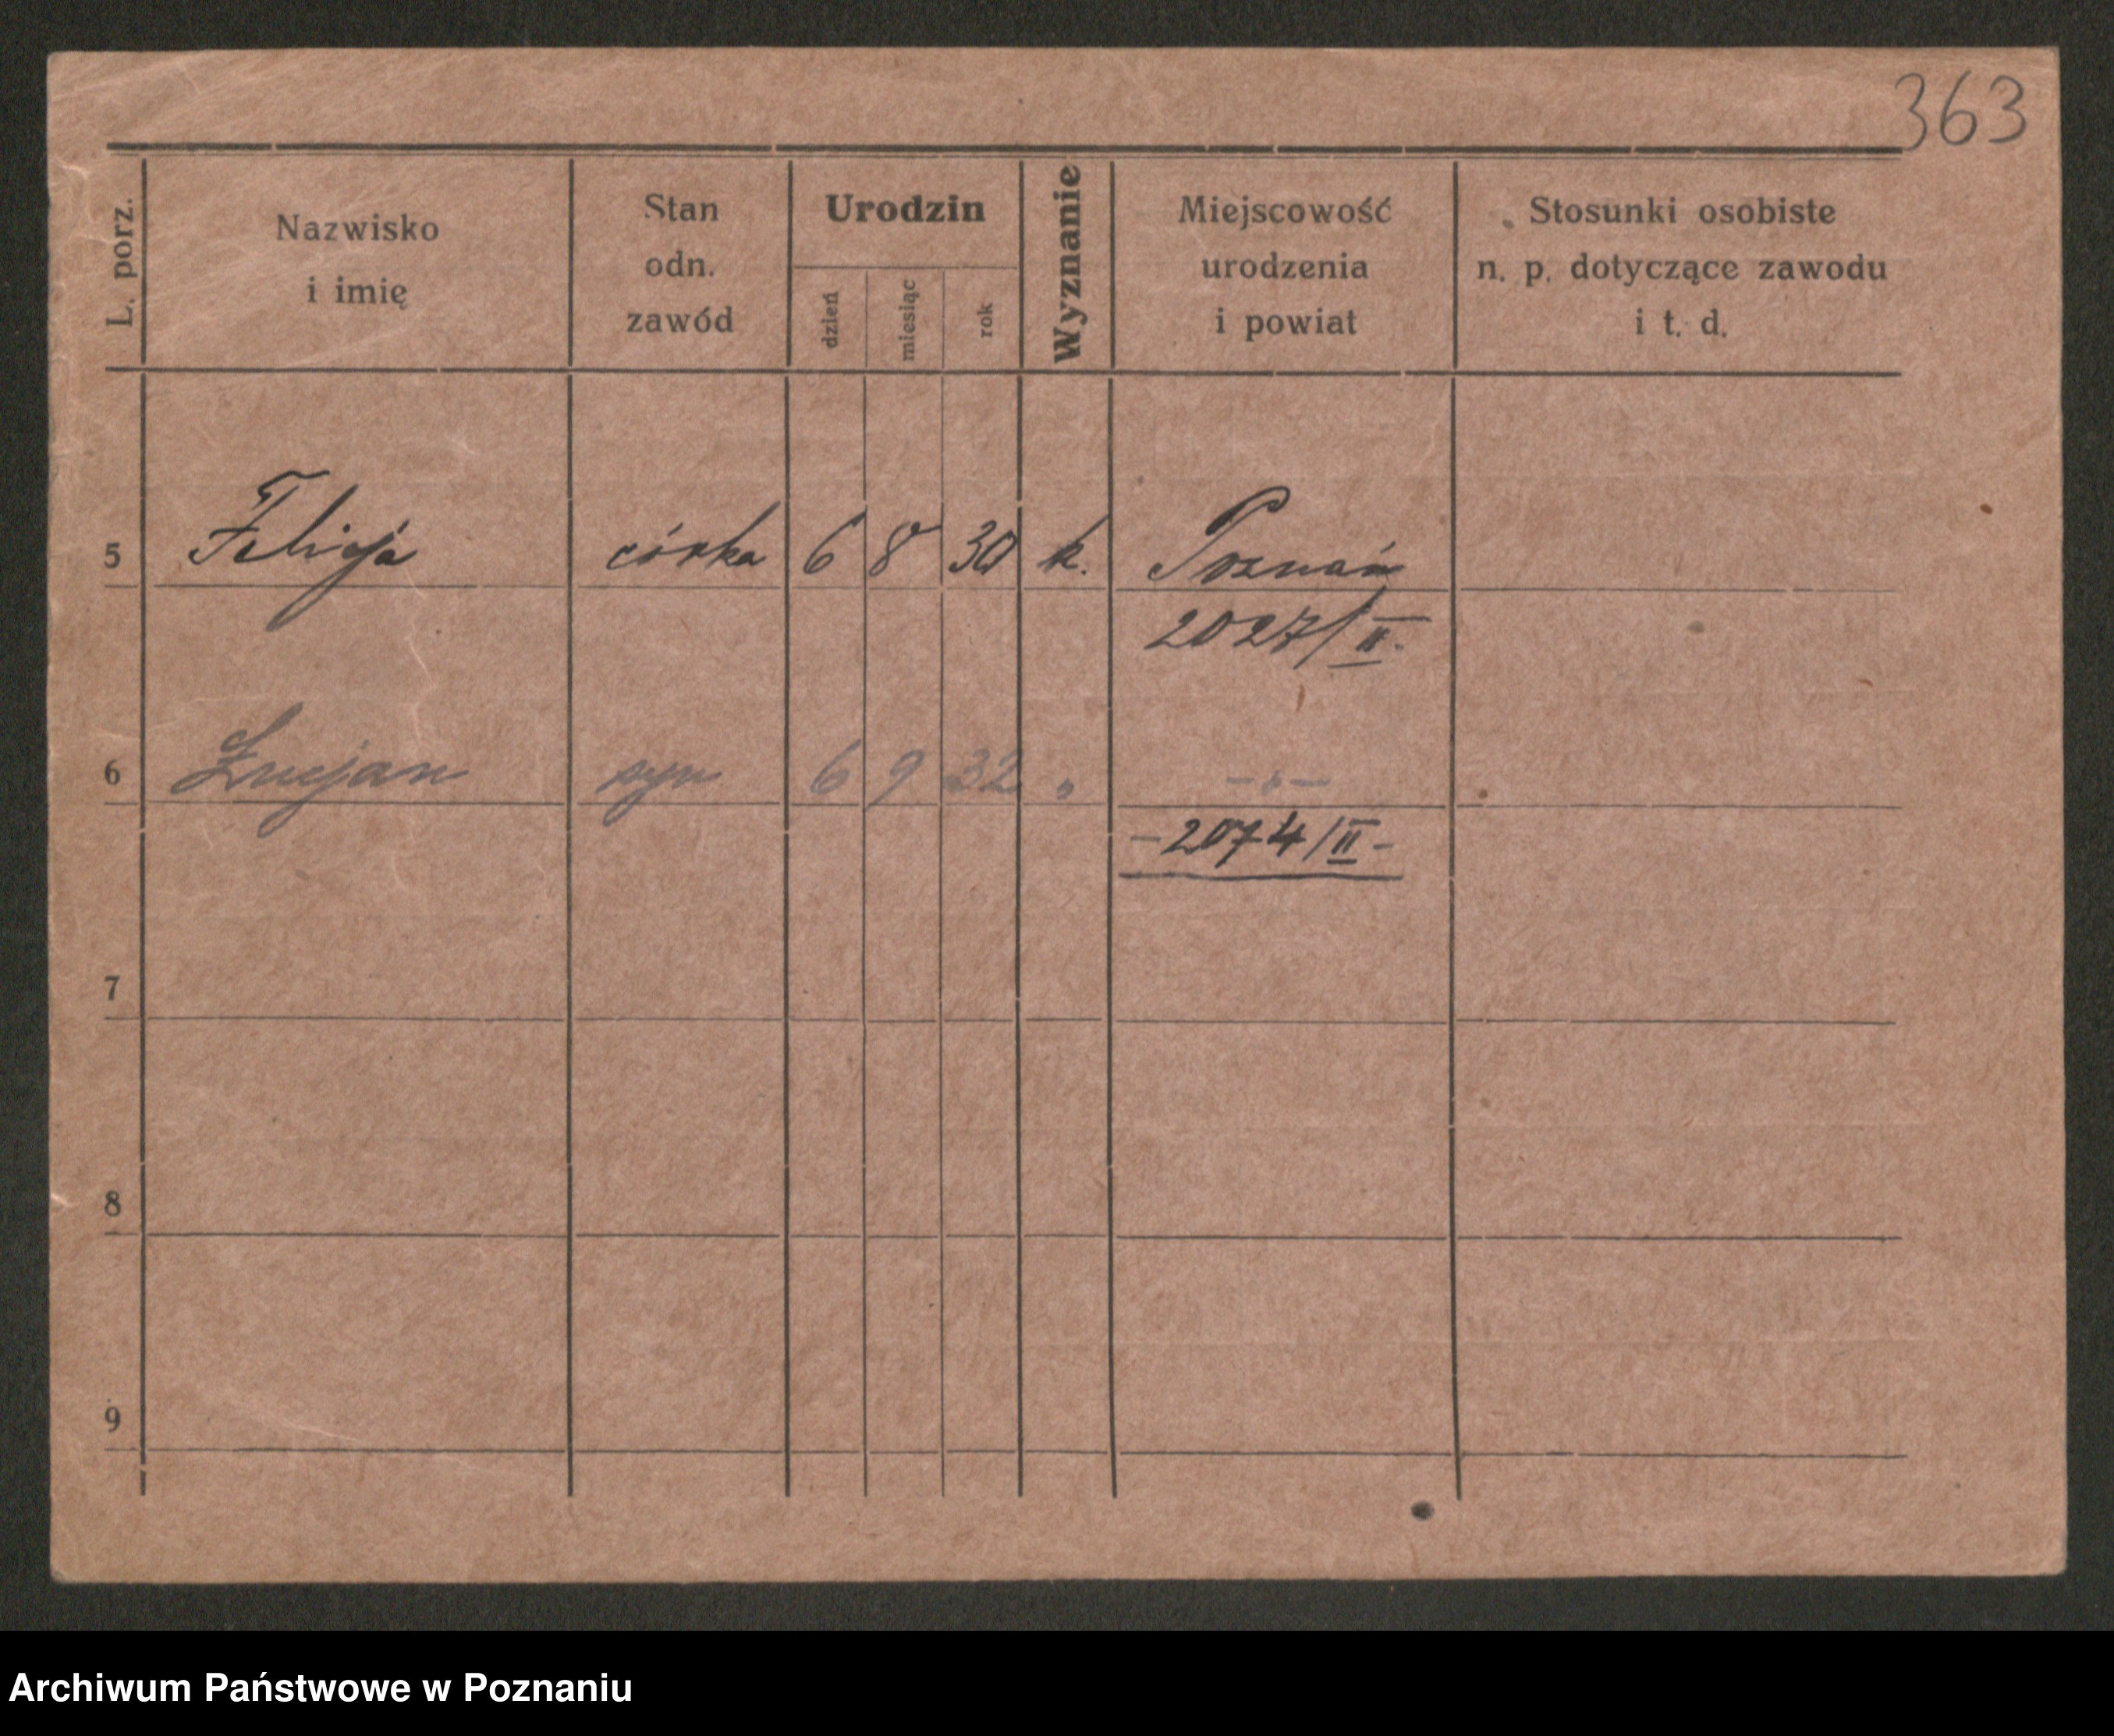 363
L. porz.
Nazwisko
i imię
Stan
odn.
zawód
Urodzin
dzień
miesiąc
rok
Wyznanie
Miejscowość
urodzenia
i powiat
Stosunki osobiste
n. p. dotyczące zawodu
i t. d.
5 Felicja córka 6 8 30 k. Poznań
2027/II.
6 Lucjan syn 6 9 32 „ —„—
—2074/II—
7
8
9
Archiwum Państwowe w Poznaniu